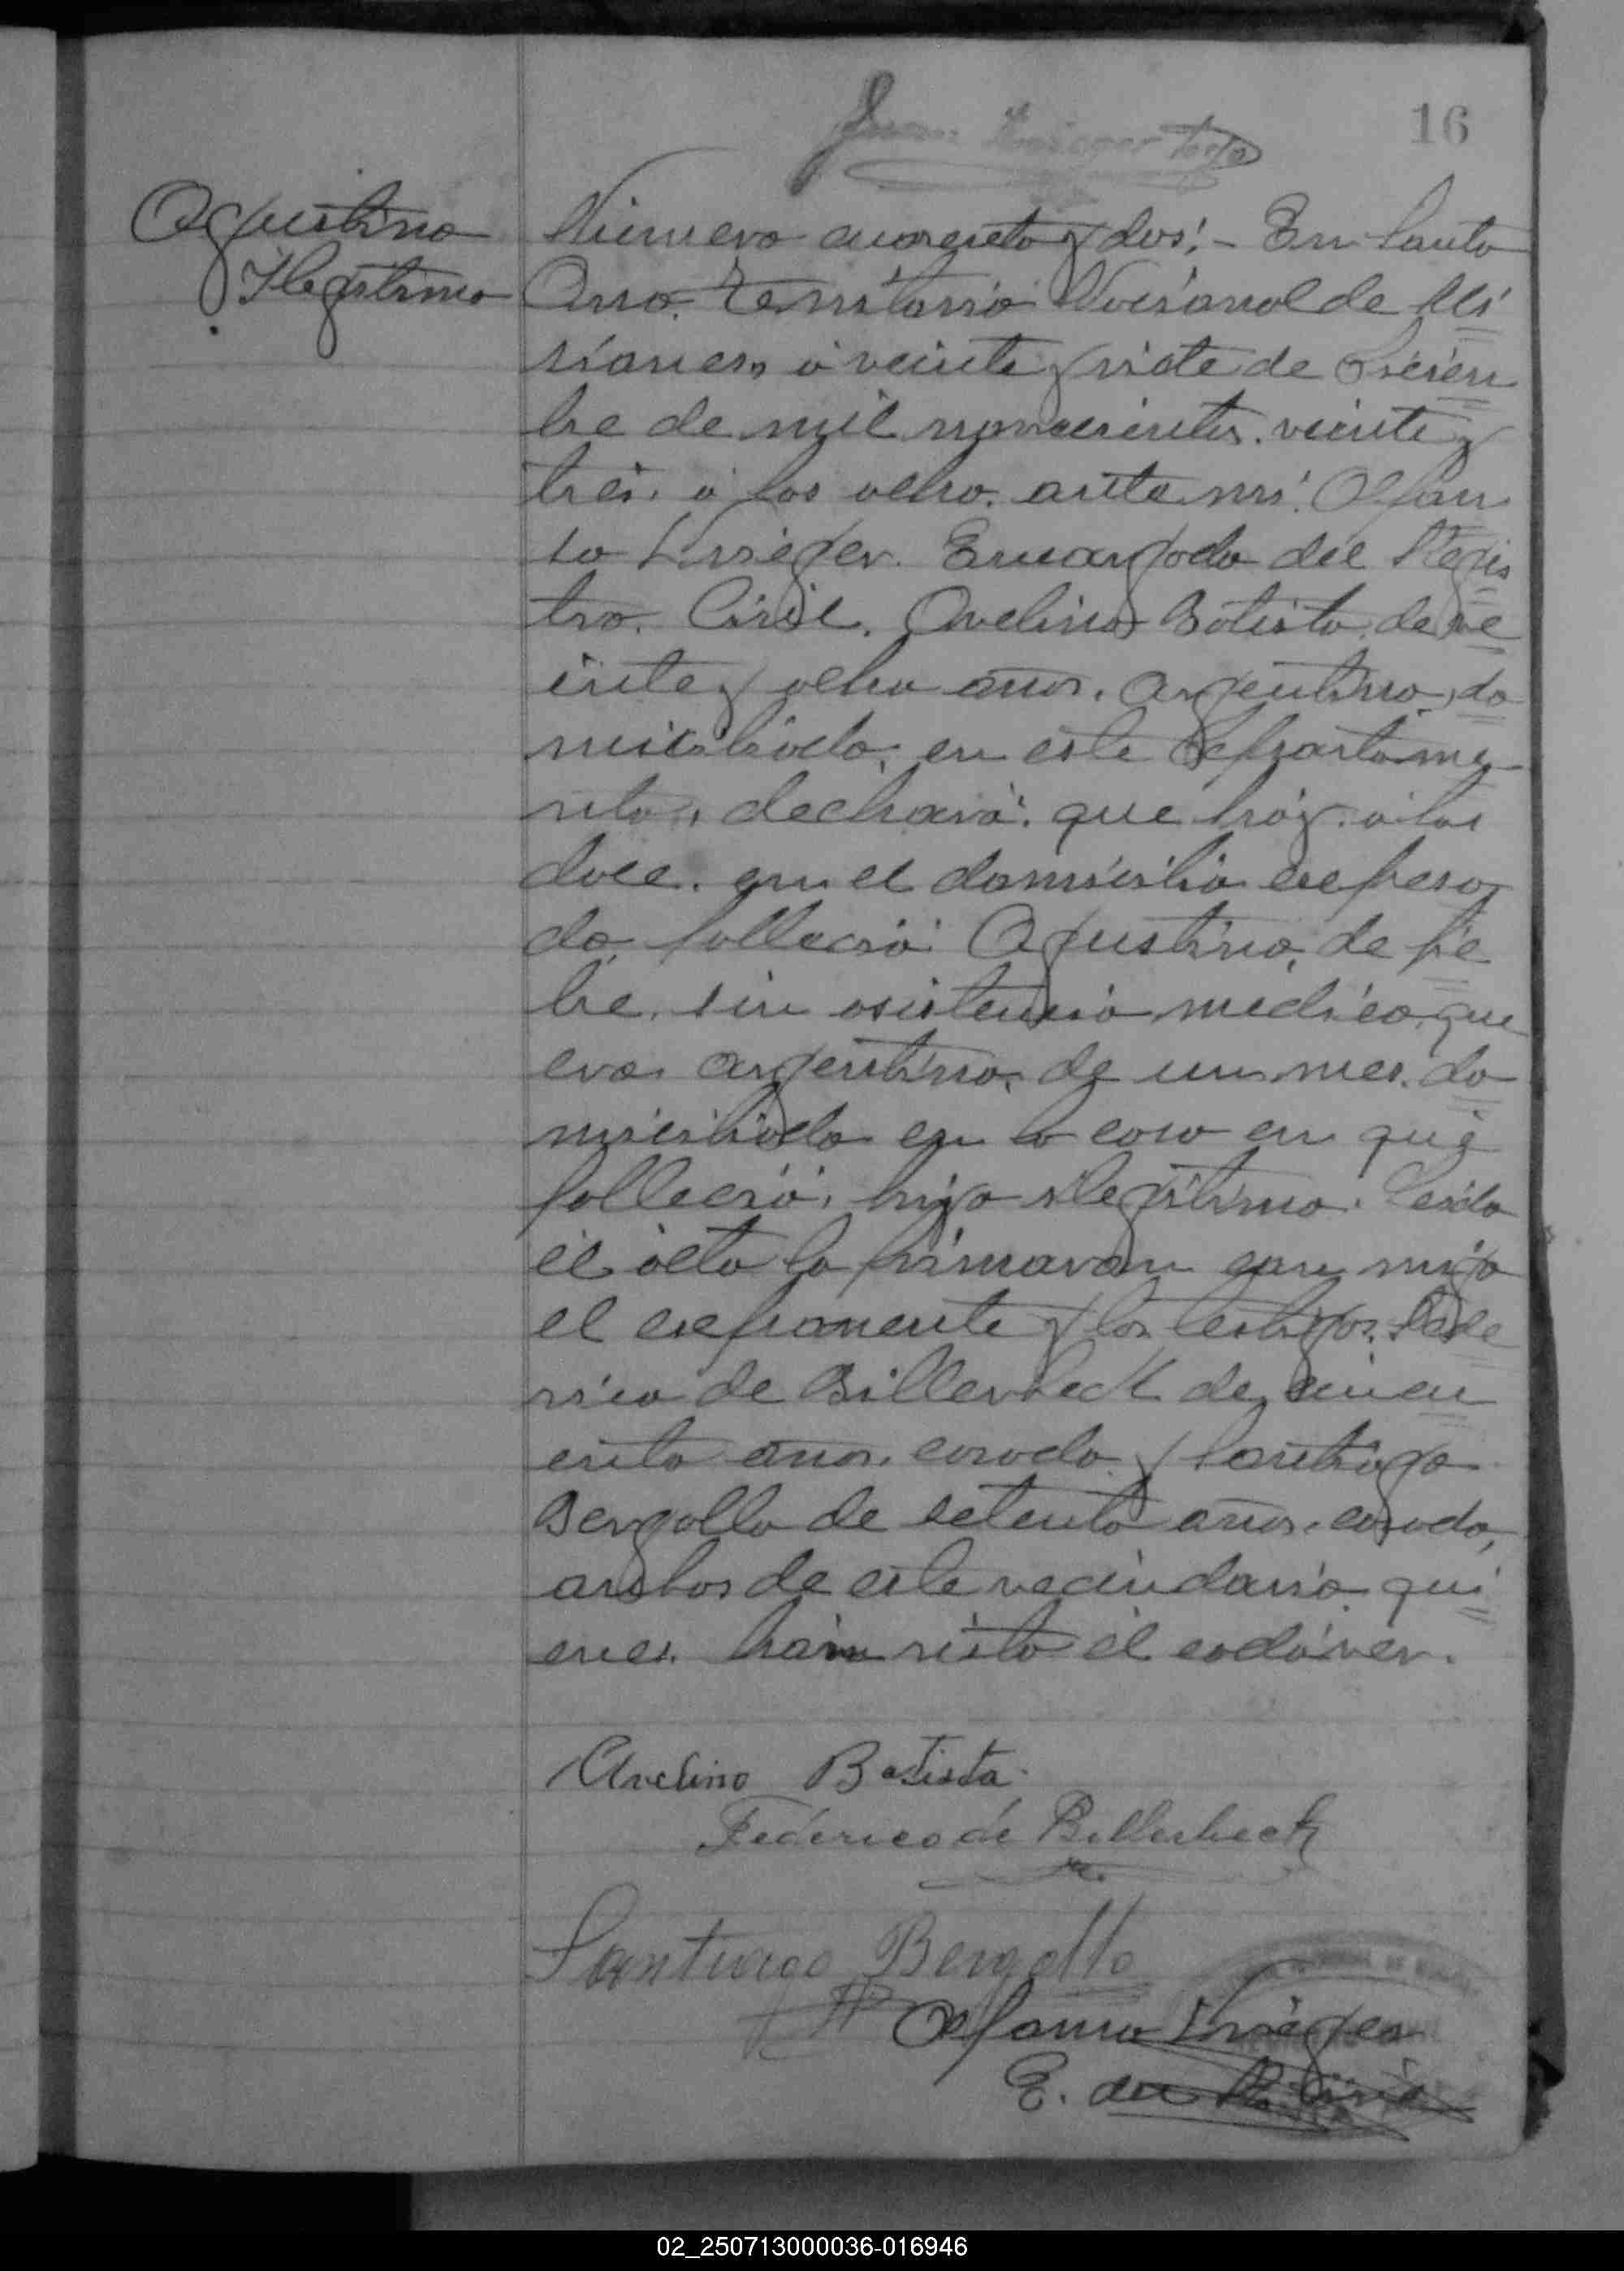 16
Agustino
Ilegitimo
Número cuarenta y dos: - En Santa
Ana. Territorio Nacional de Mi
siones, á veinte y siete de Diciem
bre de mil novecientos veinte y
tres. á las ocho. ante mi. Alfon
so Krieger. Encargado del Regis
tro. Civil. Avelino Batista. de ve
inte y ocho años. argentino, do
miciliado. en este Departame
nto, declaró: que hoy. á las
doce. en el domicilio expresa
do. falleció: Agustino, de fie
bre. sin asistencia medica, que
era. argentino. de un mes. do
miciliado en la casa en que
falleció. hijo ilegitimo. Leída
el acta la firmaron con migo
el exponente y los testigos. Fede
rico de Billerbeck de cincu
enta años. casado y Santiago
Bergallo de setenta años. casado,
ambos de este vecindario qui
enes. han visto el cadáver.
Avelino Batista
Federico de Billerbeck
Santiago Bergallo
Alfonso Krieger
E. del R. Civil
02_250713000036-016946